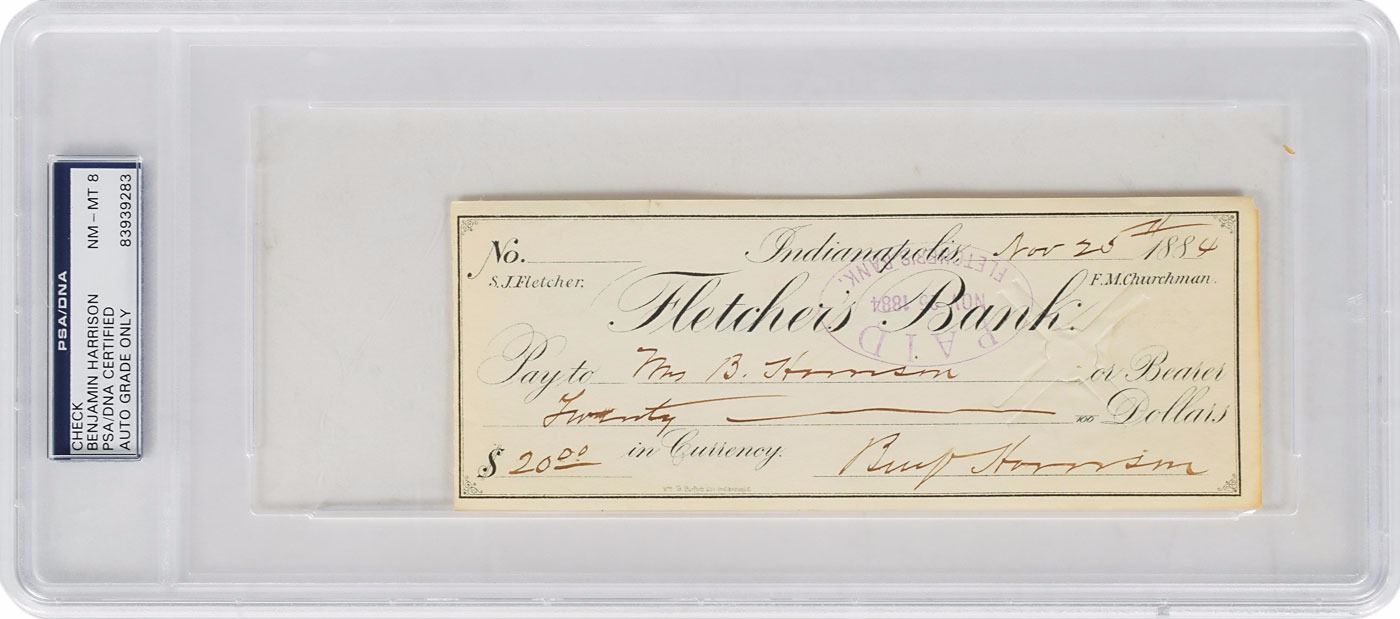 PSA/DNA
CHECK
BENJAMIN HARRISON NM – MT 8
PSA/DNA CERTIFIED
AUTO GRADE ONLY 83939283
No. Indianapolis, Nov 25th 1884
S.J. Fletcher. F.M. Churchman.
Fletcher's Bank.
Pay to Mrs B. Harrison or Bearer
Twenty 100 Dollars
$ 20.00 in Currency. Benj Harrison
FLETCHER'S BANK.
NOV 25 1884
PAID